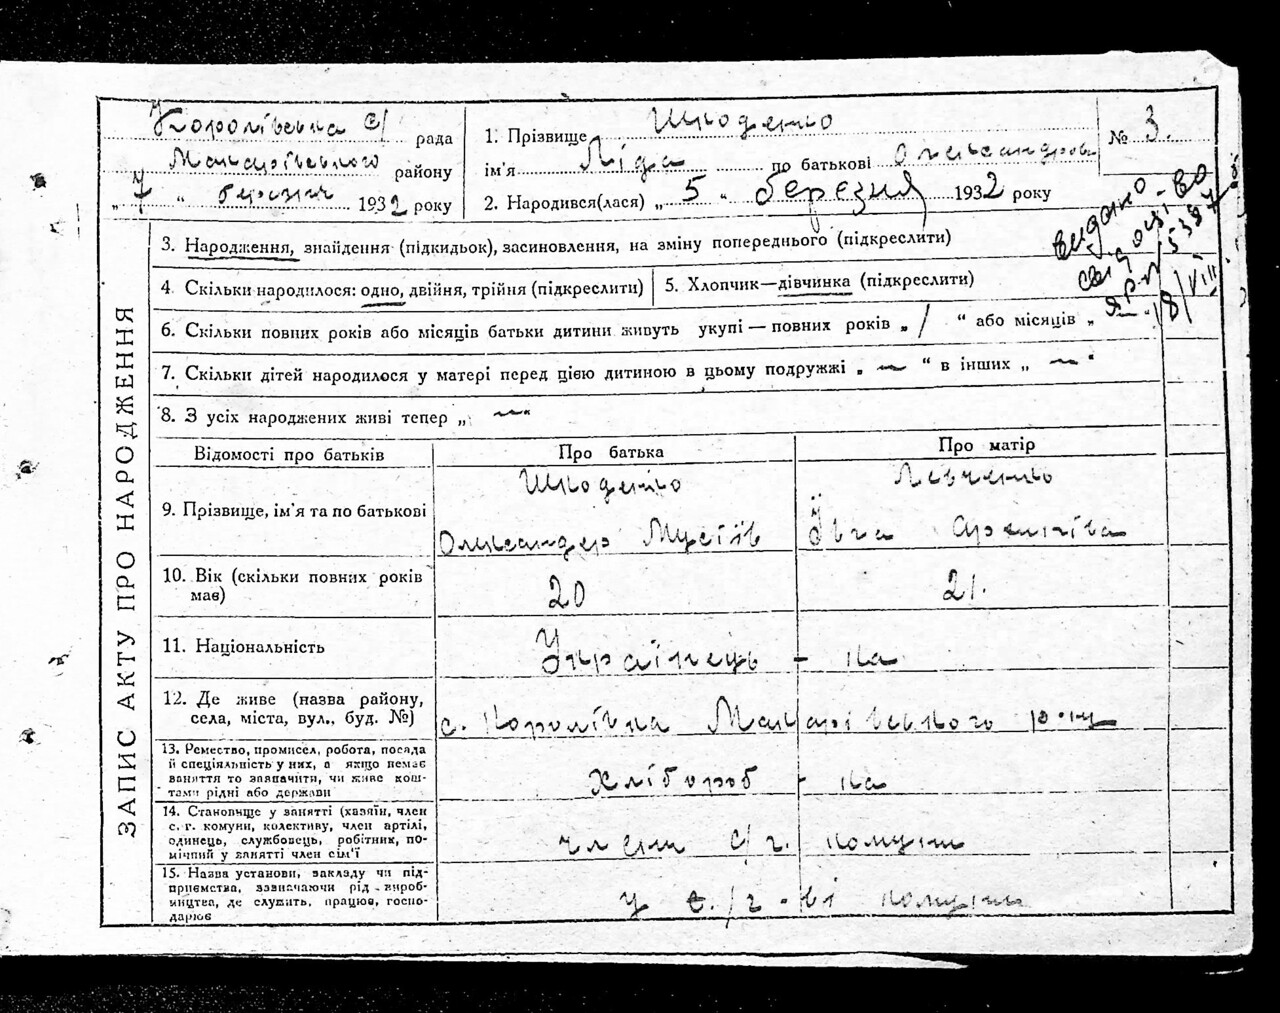 Королівська с/ рада
Макарівського району
„ 7 “ березня 1932 року
1. Прізвище Шкоденко
ім'я Ліда по батькові Олександрова
2. Народився(лася) „ 5 “ березня 1932 року
№ 3.
видано
свідоцтво
5397
18/VIII
ЗАПИС АКТУ ПРО НАРОДЖЕННЯ
3. Народження, знайдення (підкидьок), засиновлення, на зміну попереднього (підкреслити)
4. Скільки народилося: одно, двійня, трійня (підкреслити)
5. Хлопчик—дівчинка (підкреслити)
6. Скільки повних років або місяців батьки дитини живуть укупі — повних років „ / “ або місяців „ — “
7. Скільки дітей народилося у матері перед цією дитиною в цьому подружжі „ — “ в інших „ — “
8. З усіх народжених живі тепер „ — “
Відомості про батьків
Про батька
Про матір
9. Прізвище, ім'я та по батькові
Шкоденко
Олександер Мусіїв
Левченко
Ївга
10. Вік (скільки повних років
має)
20
21.
11. Національність
Українець - ка
12. Де живе (назва району,
села, міста, вул., буд. №)
с. Королівка Макарівського р-ну
13. Ремество, промисел, робота, посада
й спеціяльність у них, а якщо немає
заняття то зазначити, чи живе кош-
тами рідні або держави
хлібороб - ка
14. Становище у занятті (хазяїн, член
с. г. комуни, колективу, член артілі,
одинець, службовець, робітник, по-
мічний у занятті член сім'ї
член с/г. комуни
15. Назва установи, закладу чи під-
приємства, зазначаючи рід вироб-
ництва, де служить, працює, госпо-
дарює
у с./г-ві комуни